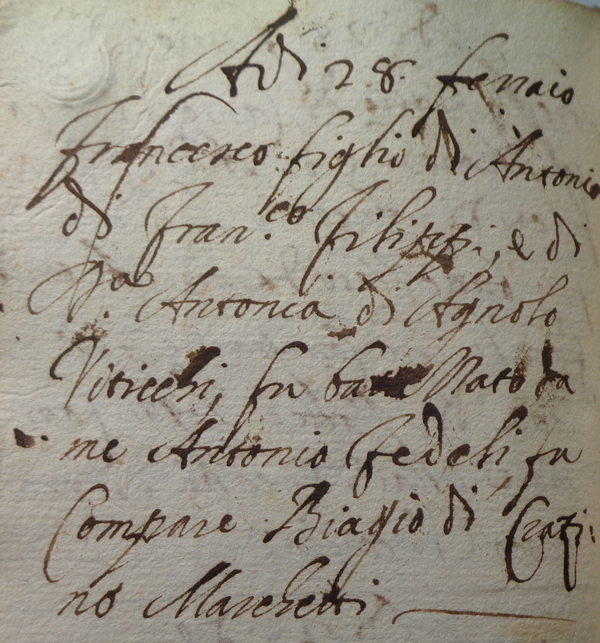 Adi 28. fenaio
francesco figlio di Antonio
di Fran.co Filippi, e di
D.a Antonia di Agnolo
Viticchi, fu battezzato da
me Antonio Fedeli, fu
Compare Biagio di
no Marchetti